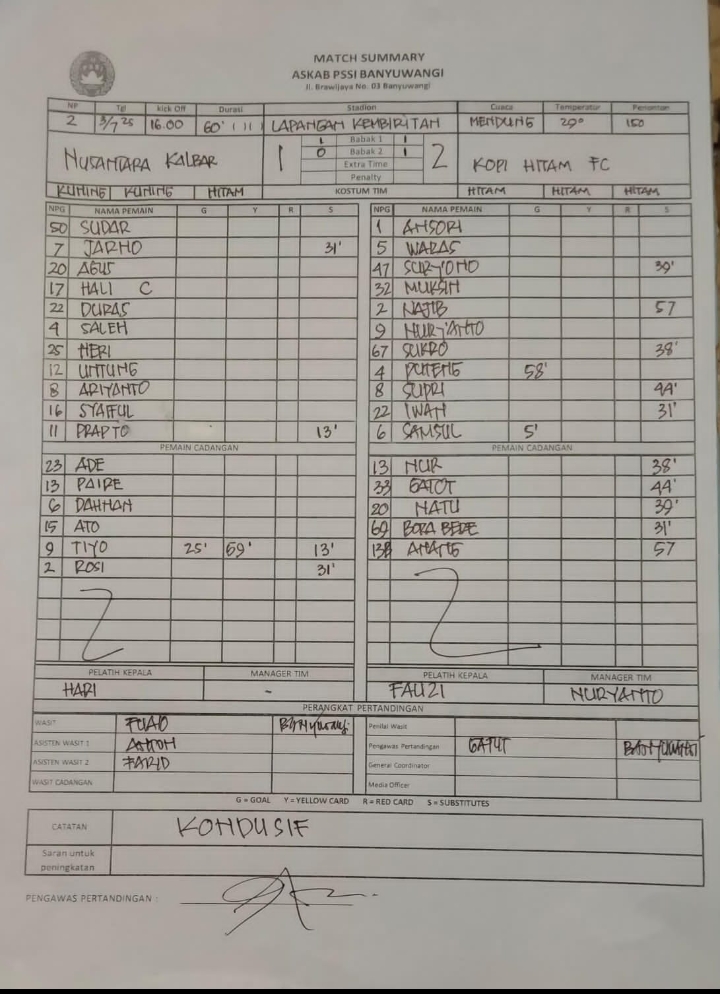 MATCH SUMMARY
ASKAB PSSI BANYUWANGI
Jl. Brawijaya No. 03 Banyuwangi
NP Tgl kick Off Durasi Stadion Cuaca Temperatur Penonton
2 3/7 25 16.00 60' LAPANGAN KEMBIRITAN MENDUNG 29° 150
NUSANTARA KALBAR 1 1 Babak 1 1 2 KOPI HITAM FC
0 Babak 2 1
Extra Time
Penalty
KUNING KUNING HITAM KOSTUM TIM HITAM HITAM HITAM
NPG NAMA PEMAIN G Y R S NPG NAMA PEMAIN G Y R S
50 SUDAR 1 ANSORI
7 JARNO 31' 5 WARAS
20 AGUS 47 SURYONO 39'
17 HALI C 32 MUKSIN
22 DURAS 2 NAJIB 57
4 SALEH 9 NURYANTO
25 HERI 67 SUKRO 38'
12 UNTUNG 4 58'
8 ARIYANTO 8 SUPRI 44'
16 SYAIFUL 22 IWAN 31'
11 PRAPTO 13' 6 SAMSUL 5'
PEMAIN CADANGAN PEMAIN CADANGAN
23 ADE 13 NUR 38'
13 PAIRE 33 GATOT 44'
6 DAHMAN 20 NATU 39'
15 ATO 69 BORA BERE 31'
9 TIYO 25' 59' 13' ANANG 57
2 ROSI 31'
PELATIH KEPALA MANAGER TIM PELATIH KEPALA MANAGER TIM
HARI - FAUZI NURYANTO
PERANGKAT PERTANDINGAN
WASIT FUAD Penilai Wasit
ASISTEN WASIT 1 ANTON Pengawas Pertandingan GATUT
ASISTEN WASIT 2 FARID General Coordinator
WASIT CADANGAN Media Officer
G = GOAL Y = YELLOW CARD R = RED CARD S = SUBSTITUTES
CATATAN KONDUSIF
Saran untuk
peningkatan
PENGAWAS PERTANDINGAN :